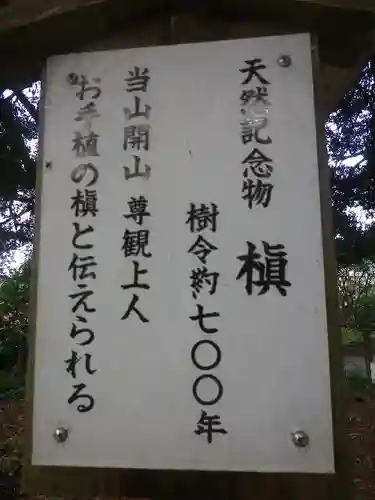 天然記念物 槇
樹令約七〇〇年
当山開山 尊観上人
お手植の槇と伝えられる